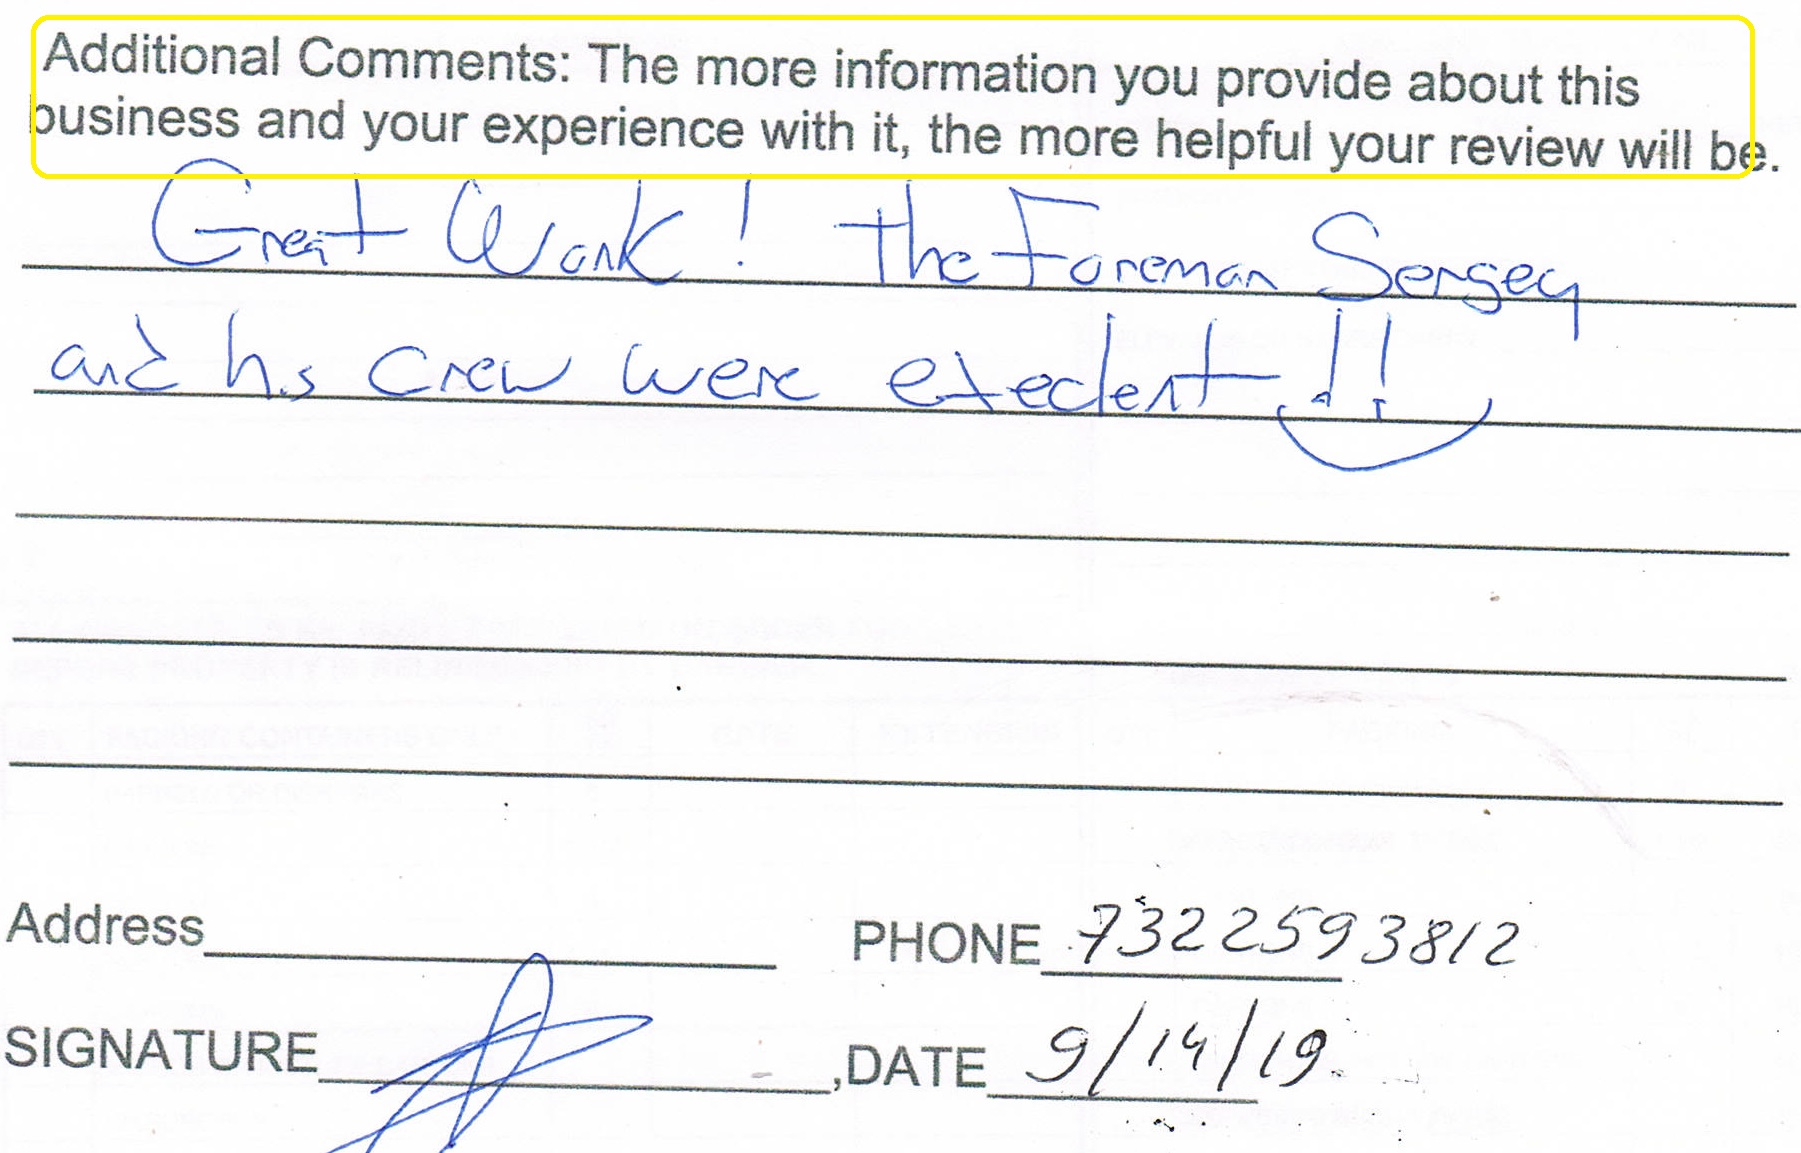 Additional Comments: The more information you provide about this
business and your experience with it, the more helpful your review will be.
Great Work! The Foreman Sergey
and his crew were execlent!!
Address PHONE 7322593812
SIGNATURE ,DATE 9/14/19